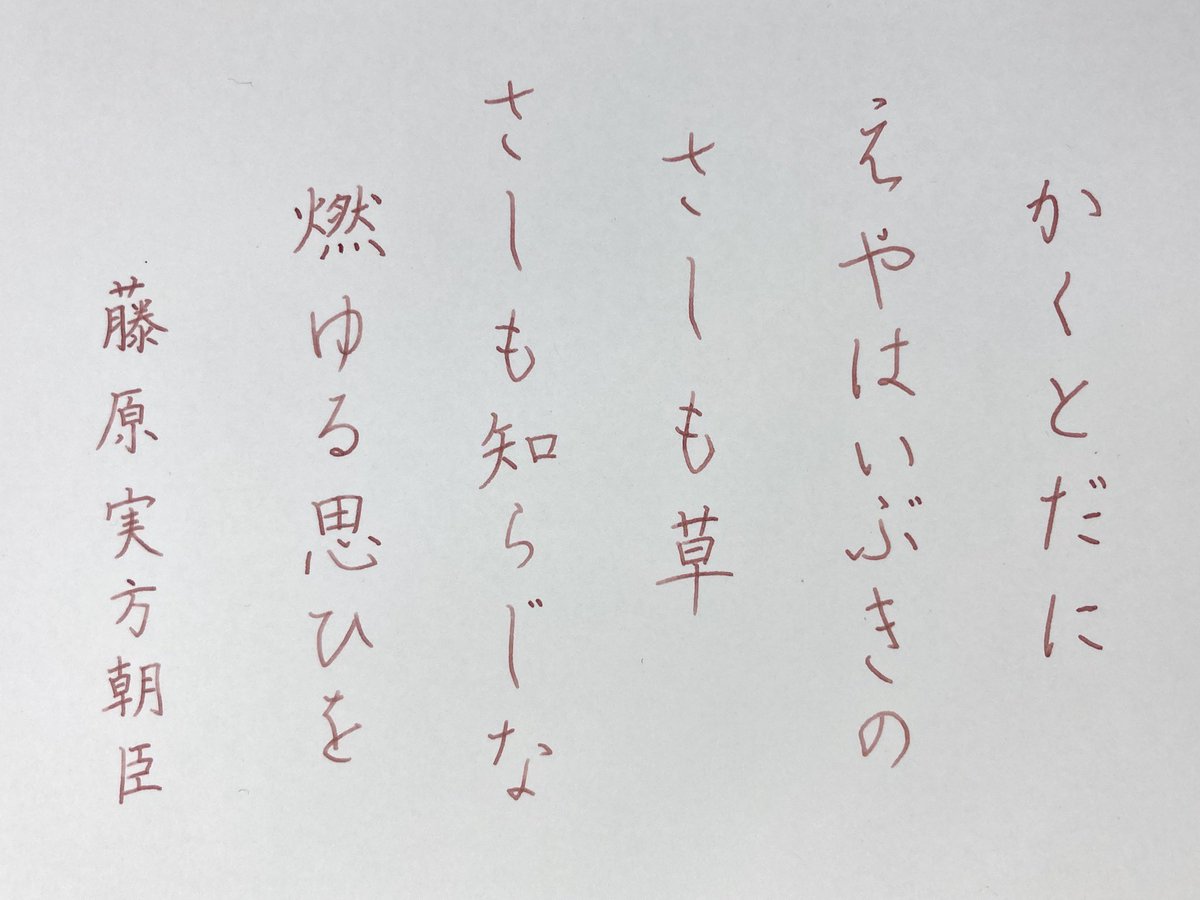 かくとだに
えやはいぶきの
さしも草
さしも知らじな
燃ゆる思ひを
藤原実方朝臣